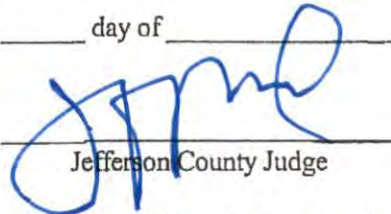 day of
Jefferson County Judge